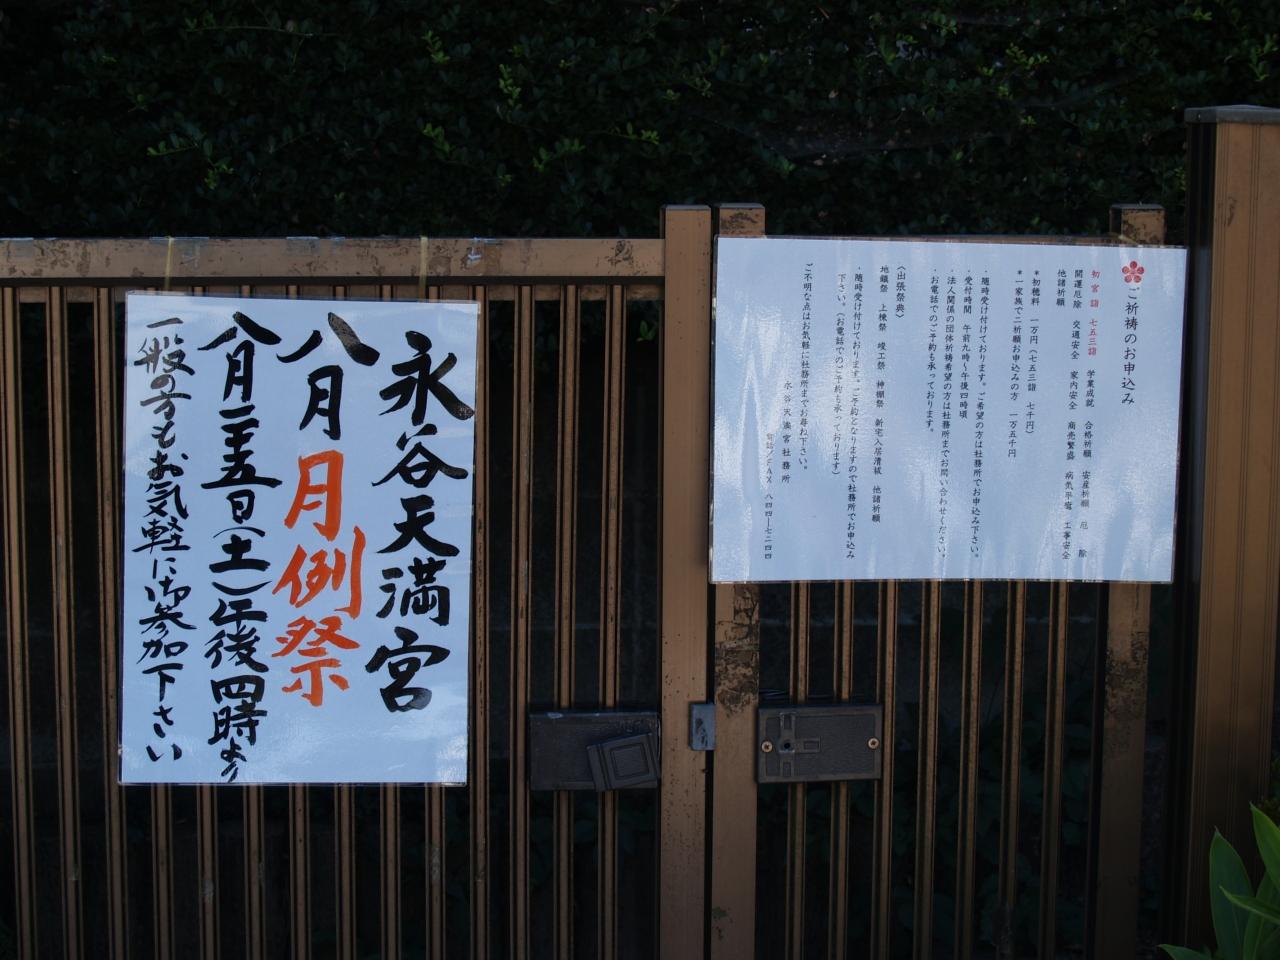 永谷天満宮
八月月例祭
八月二十五日(土)午後四時より
一般の方もお気軽に御参加下さい
ご祈祷のお申込み
初宮詣 七五三詣 学業成就 合格祈願 安産祈願 厄除
開運厄除 交通安全 家内安全 商売繁盛 病気平癒 工事安全
他諸祈願
*初穂料 一万円(七五三詣 七千円)
*一家族で二祈願お申込みの方 一万五千円
・随時受け付けております。ご希望の方は社務所でお申込み下さい。
・受付時間 午前九時〜午後四時頃
・法人関係の団体祈祷希望の方は社務所までお問い合わせください。
・お電話でのご予約も承っております。
〈出張祭典〉
地鎮祭 上棟祭 竣工祭 神棚祭 新宅入居清祓 他諸祈願
・随時受け付けております。ご予約となりますので社務所でお申込み
下さい。(お電話でのご予約も承っております)
ご不明な点はお気軽に社務所までお尋ね下さい。
永谷天満宮社務所
電話/FAX 八四四―七二四四